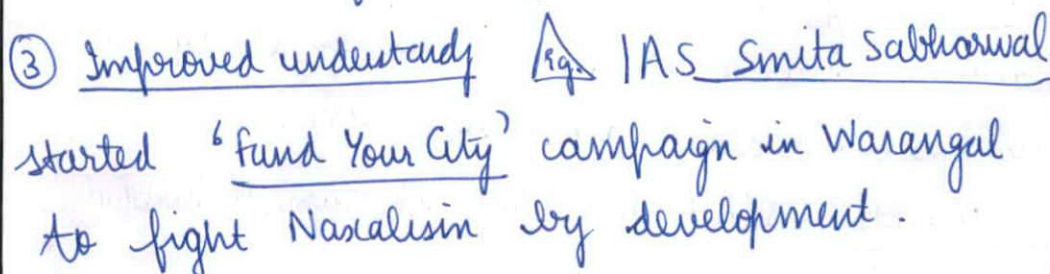 ③ Improved understandg Eg. IAS Smita Sabharwal
started 'Fund Your City' campaign in Warangal
to fight Naxalism by development.